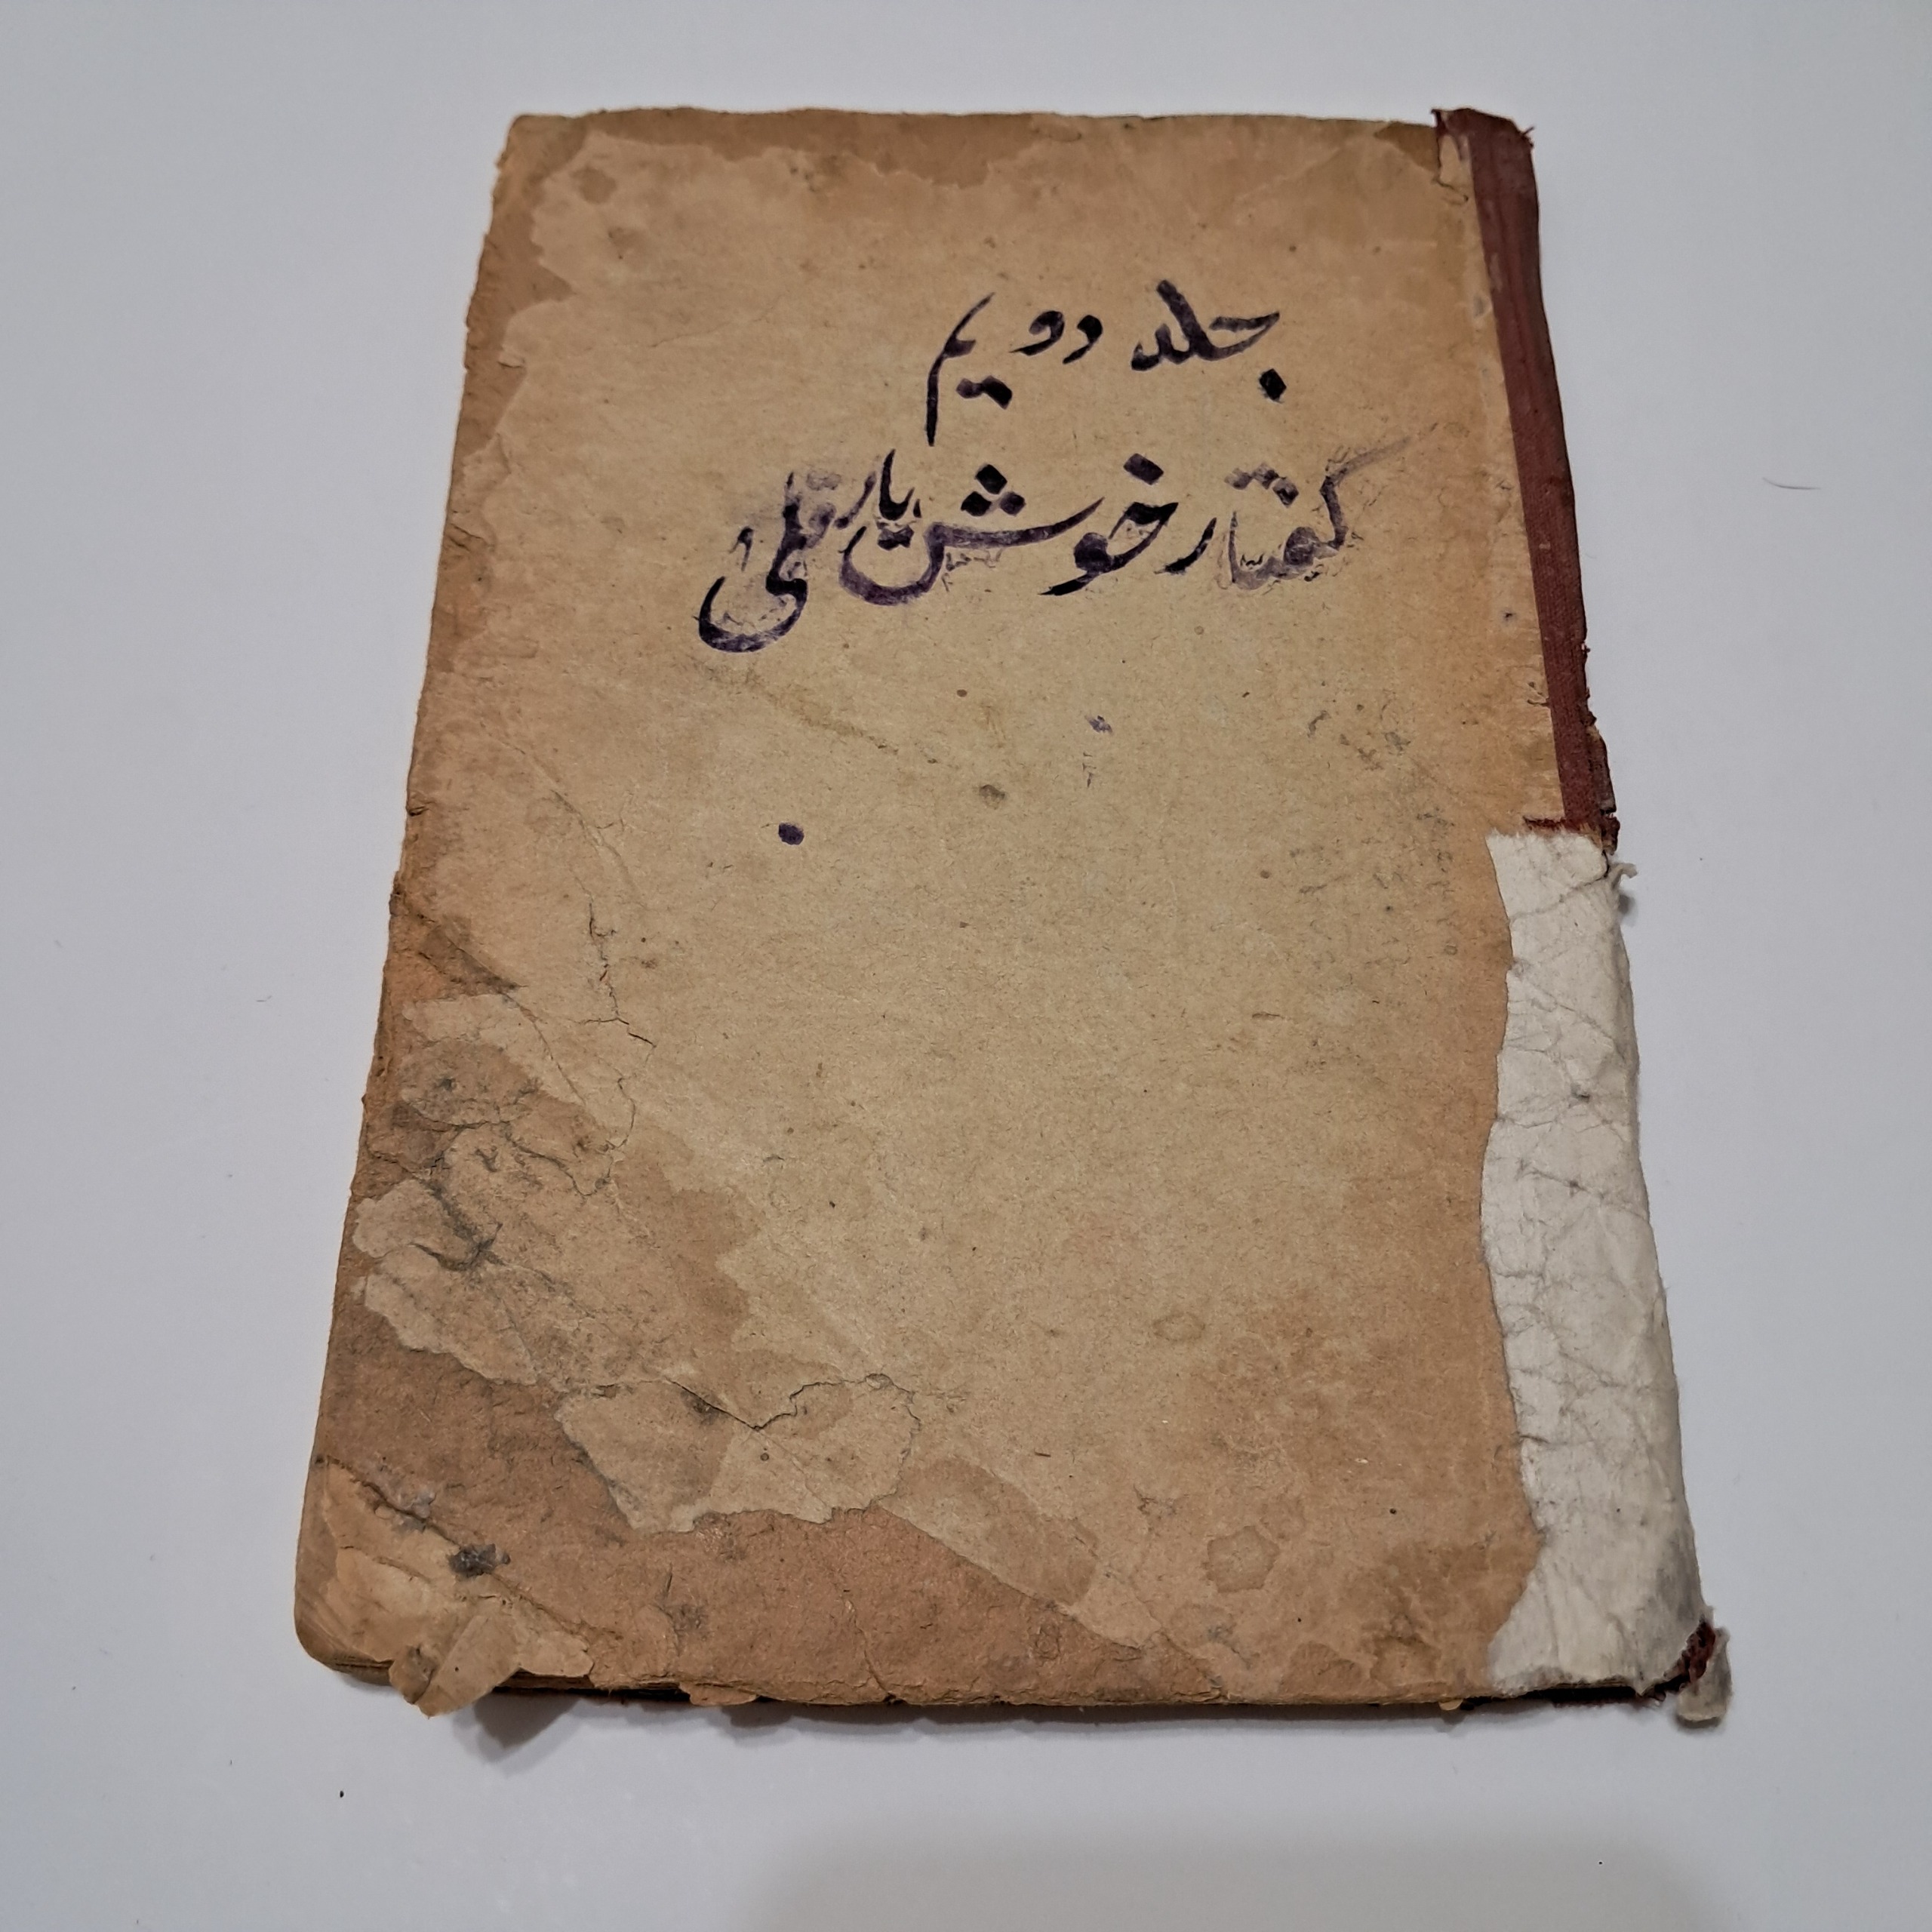 جلد دویم
گفتار خوش یارقلی